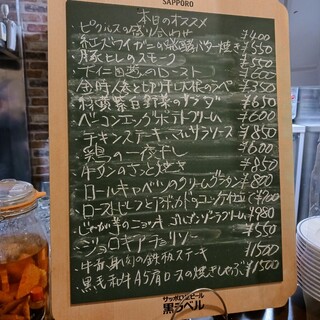 SAPPORO
本日のオススメ
・ピクルスの盛り合わせ ¥400
・紅ズワイガニの発酵バター焼き ¥550
・豚ヒレのスモーク ¥550
のロースト ¥600
¥350
サラダ ¥650
・ベーコンエッグポテトフリーム ¥600
・チキンステーキ ソース ¥850
・鶏の一夜干し ¥600
・牛タンのさっと焼き ¥850
・ロールキャベツのクリームグラタン ¥800
・ローストビーフと フォアグラのコンフィ
・じゃが芋のニョッキ ゴルゴンゾーラクリーム ¥980
・ジョロキアチョリソー ¥550
・牛 の鉄板ステーキ ¥1500
・黒毛和牛A5肩ロースの焼きしゃぶ ¥1500
サッポロ生ビール
黒ラベル